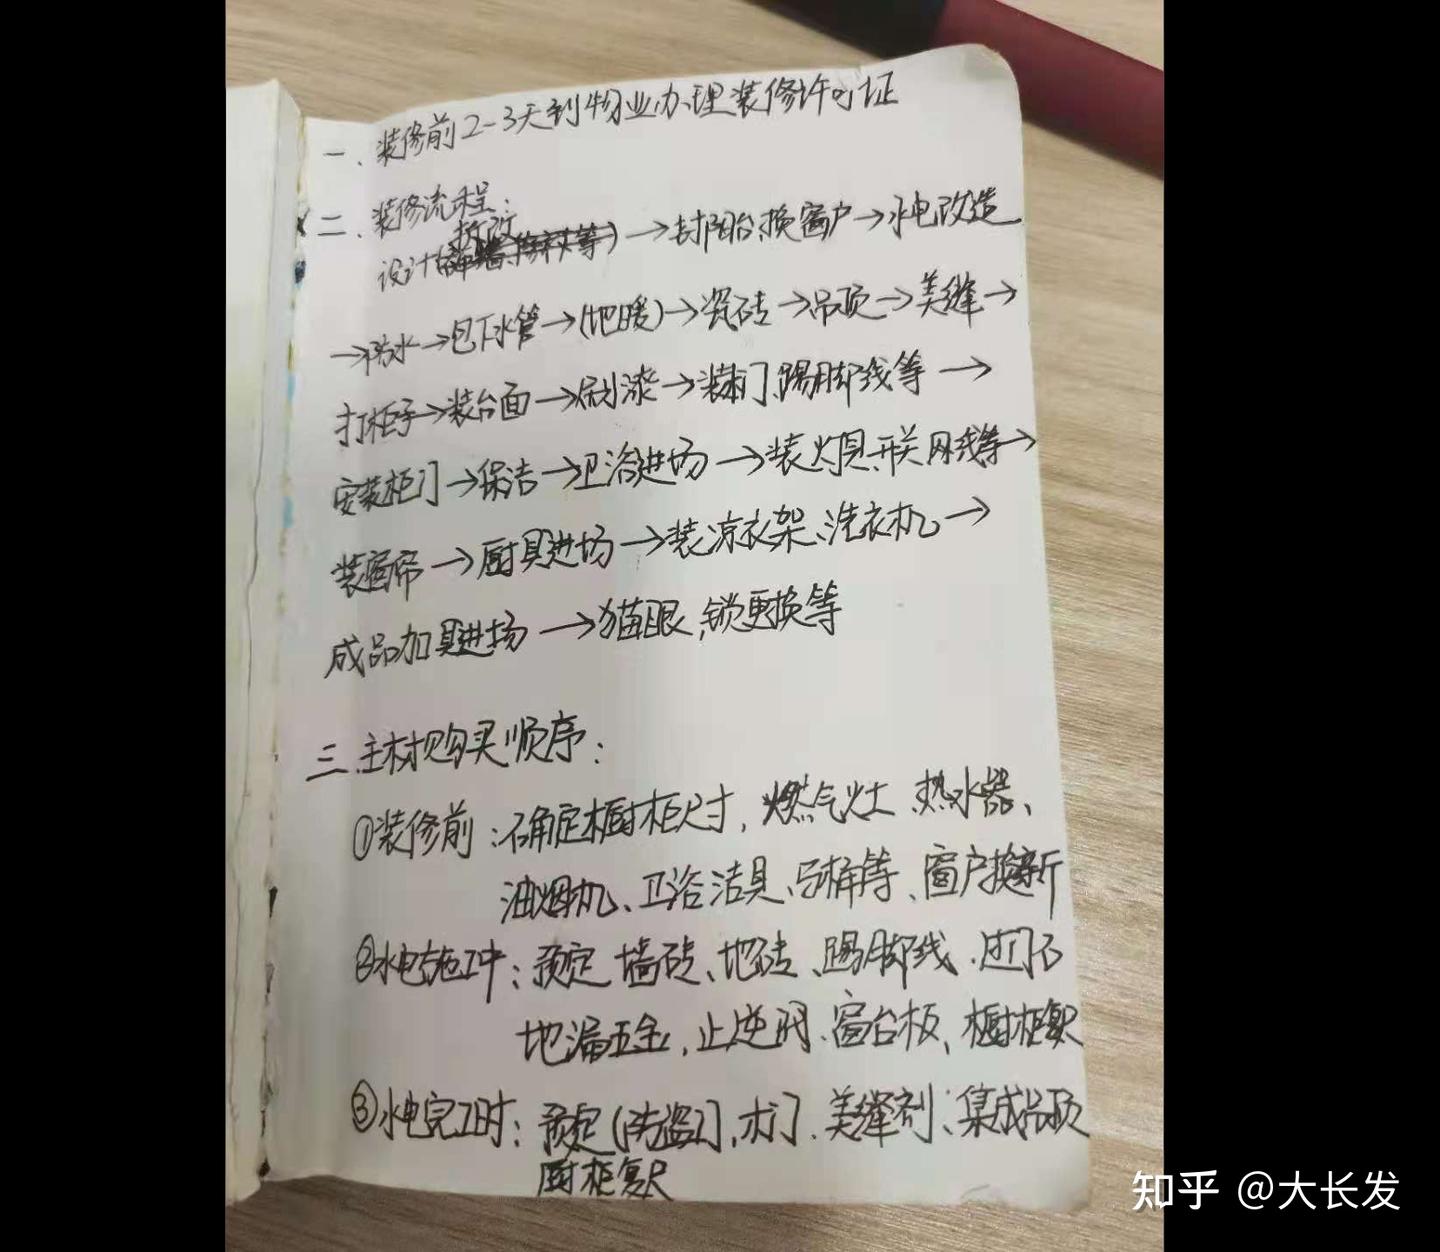 一、装修前2-3天到物业办理装修许可证
二、装修流程:
拆改
设计( 等)→封阳台、换窗户→水电改造
→防水→包下水管→(地暖)→瓷砖→吊顶→美缝→
打柜子→装台面→刷漆→装木门、踢脚线等→
安装柜门→保洁→卫浴进场→装灯具、开关、网线等→
装窗帘→厨具进场→装凉衣架、洗衣机→
成品加具进场→猫眼,锁更换等
三、主材购买顺序:
①装修前:确定橱柜尺寸,燃气灶、热水器、
油烟机、卫浴洁具、马桶等、窗户换新
②水电施工中:预定墙砖、地砖、踢脚线、过门石
地漏五金,止逆阀、窗台板、橱柜复尺
③水电完工时:预定(防盗门),木门、美缝剂、集成吊顶
厨柜复尺
知乎 @大长发